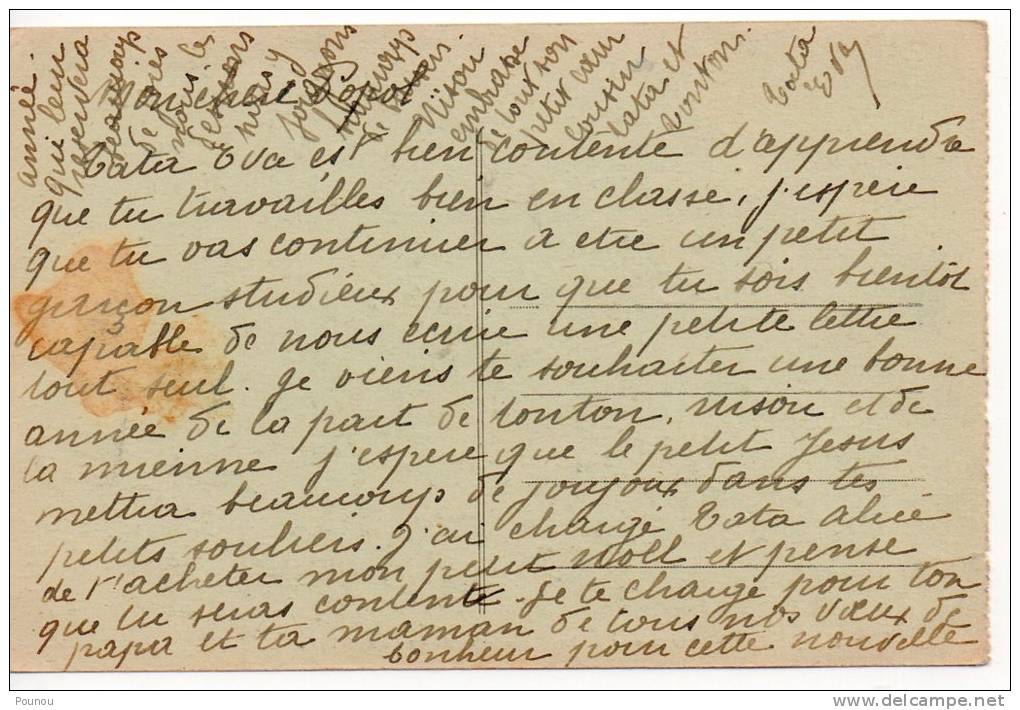 Mon cher
Tata Eva est bien contente d'apprendre
que tu travailles bien en classe, j'espère
que tu vas continuer a etre un petit
garçon studieux pour que tu sois bientôt
capable de nous ecrire une petite lettre
tout seul. Je viens te souhaiter une bonne
année de la part de tonton, nison et de
la mienne j'espere que le petit Jesus
mettra beaucoup de joujoux dans tes
petits souliers. J'ai chargé Tata alice
de t'acheter mon petit noll et pense
que tu seras content. Je te charge pour ton
papa et ta maman de tous nos vœux de
bonheur pour cette nouvelle
année.
qui leur
reservera
beaucoup
de joies
dans les
nison
embrasse
de tout son
petit cœur
cousin
tata et
tonton.
Tata
Eva
Pounou
www.delcampe.net